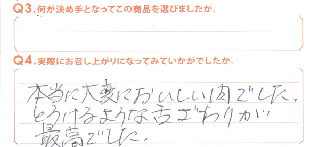 Q3.何が決め手となってこの商品を選びましたか。
Q4.実際にお召し上がりになってみていかがでしたか。
本当に大変においしい肉でした。
とろけるような舌ざわりが
最高でした。